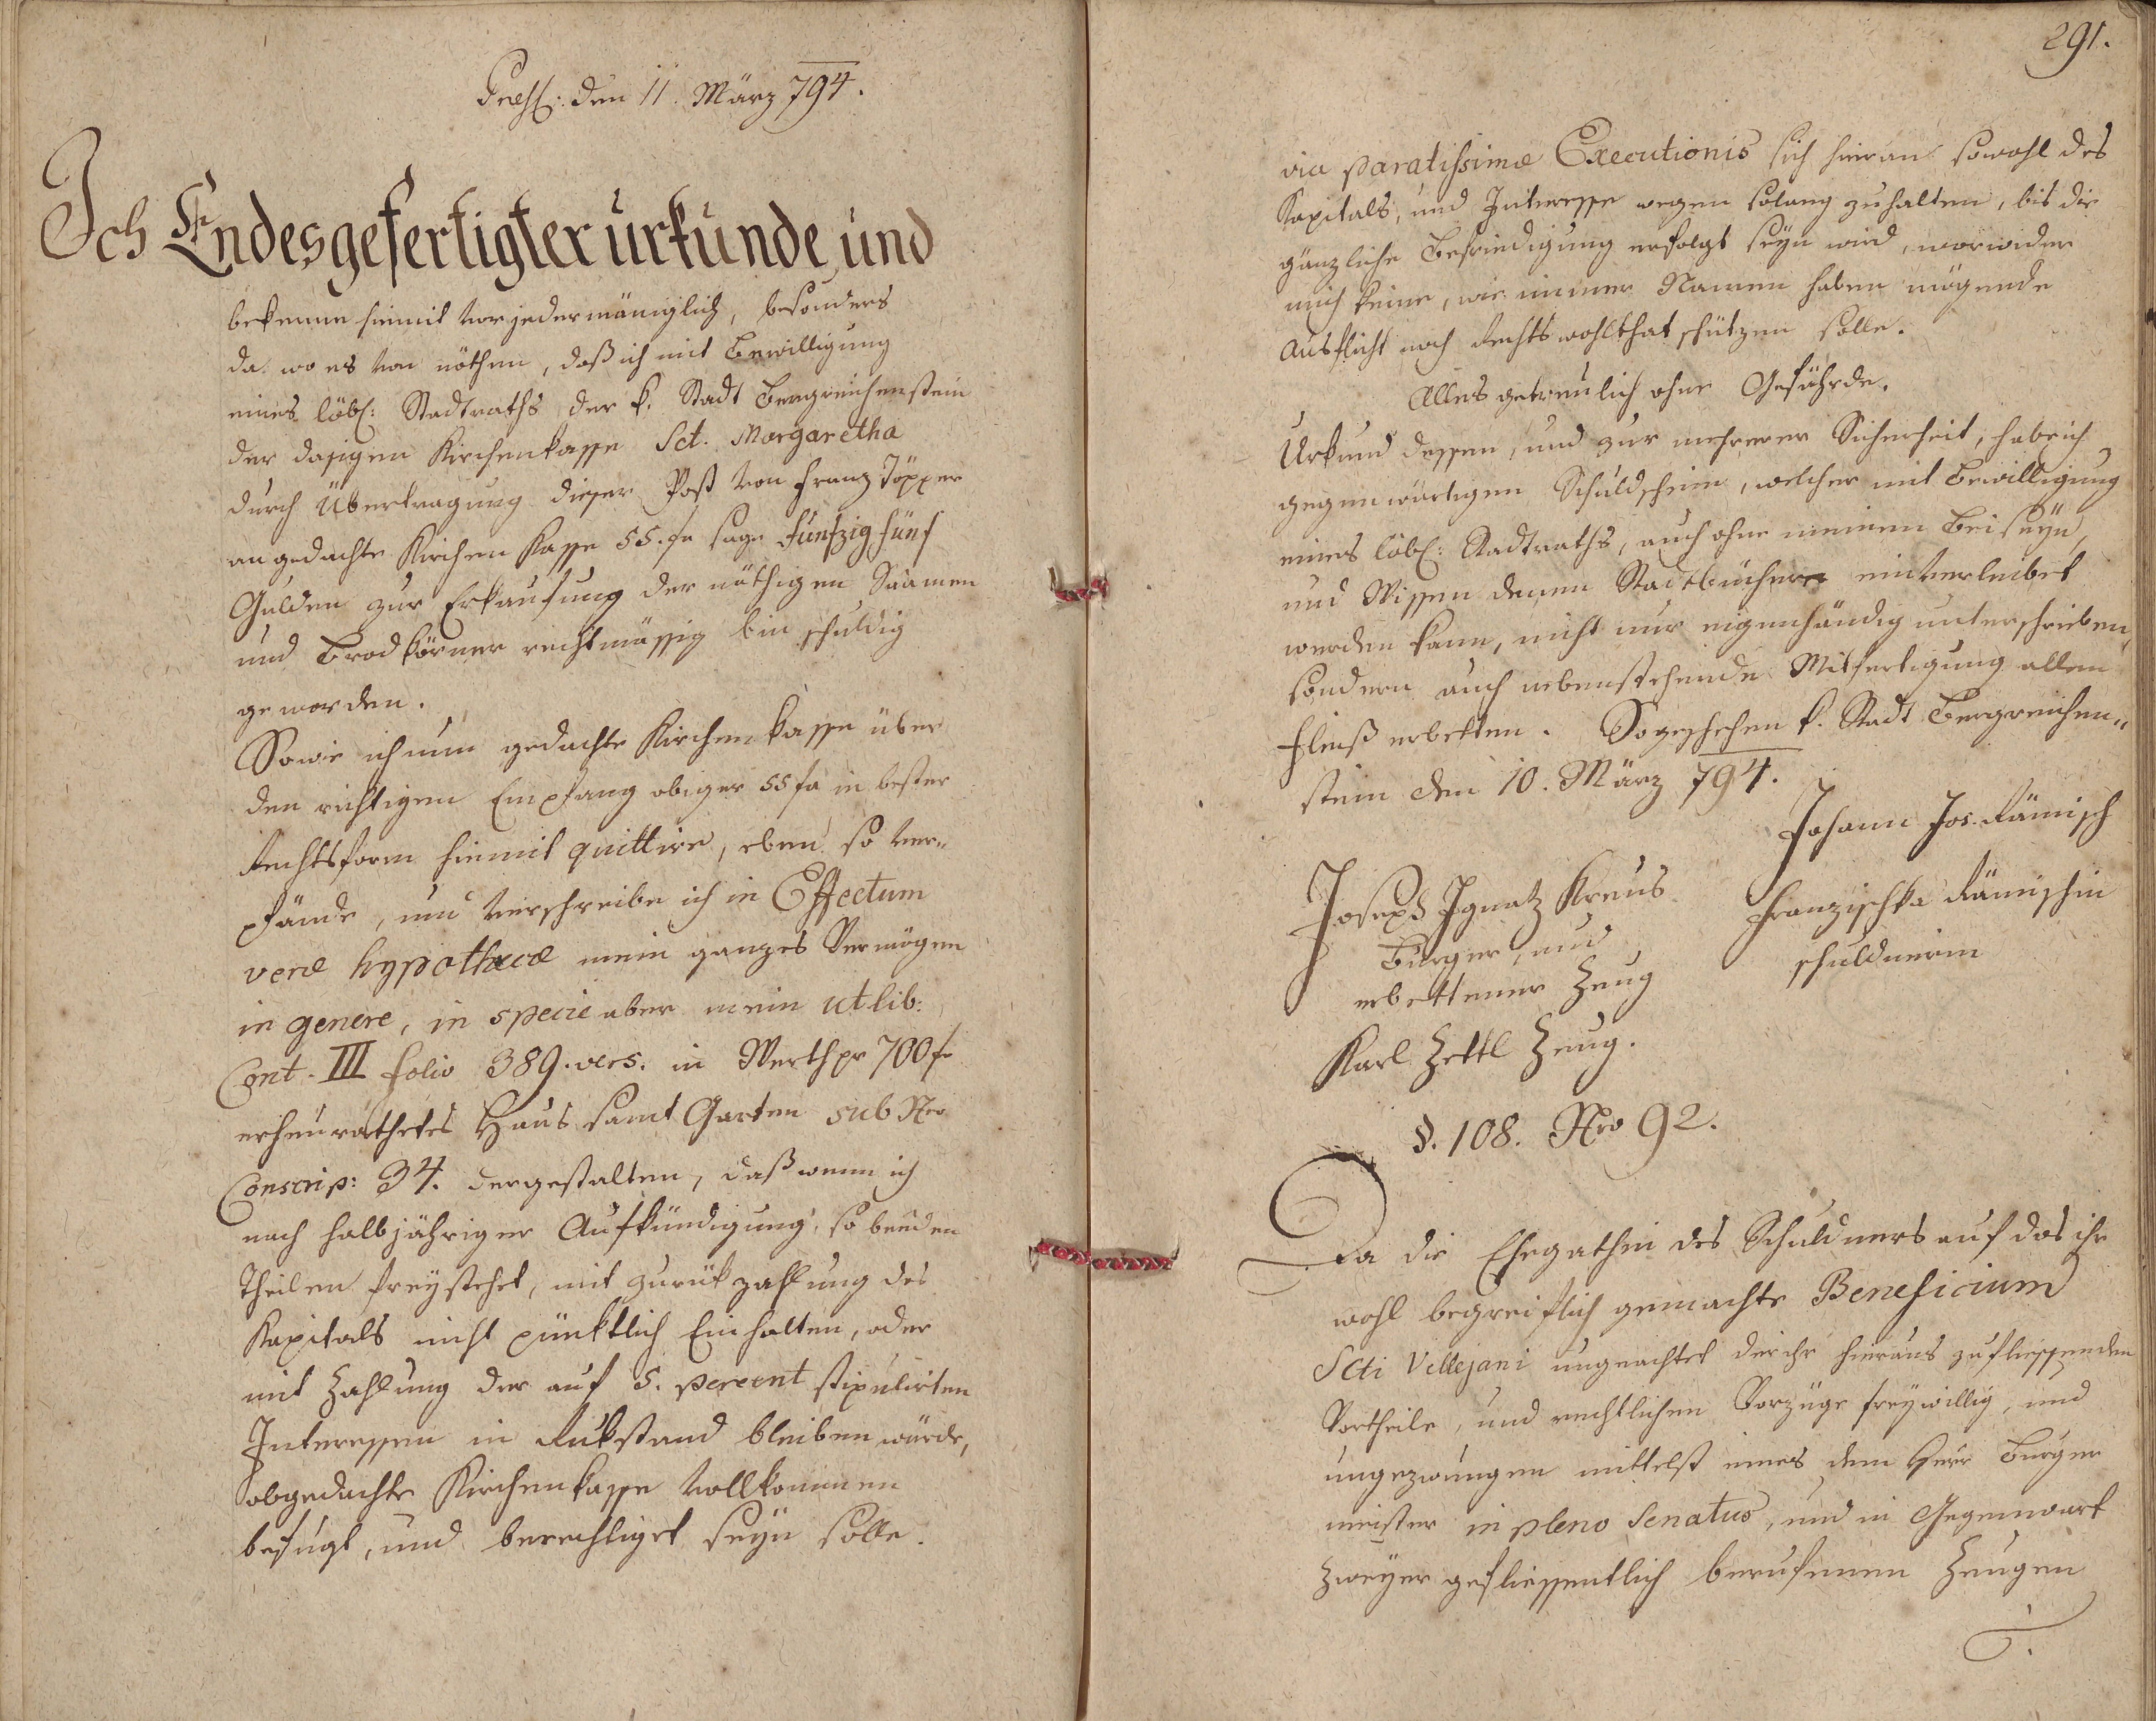 Presß: den 11. März 794.
Ich Endesgefertigter urkunde, und
bekenne hiemit vor jedermäniglich, besonders
da wo es von nöthen, daß ich mit Bewilligung
eines löbl: Stadtraths der k. Stadt Bergreichenstein
der dasigen Kirchenkasse Sct. Margaretha
durch Übertragung dieser Post von Franz Töpper
an gedachte Kirchen Kasse 55. fr sage Fünfzig fünf
Gulden zur Erkaufung der nöthigen Saamen
und Brodkörner rechtmässig bin schuldig
geworden.
Sowie ich nun gedachte Kirchenkasse über
den richtigen Empfang obiger 55 fr in bester
Rechtsform hiemit quittire, eben so ver„
pfände, und verschreibe ich in Effectum
veræ hypothecæ mein ganzes Vermögen
in genere, in specie aber mein ut lib:
Cont. III folio 389. vers. in Werth pr 700 f
erheurathetes Haus samt Garten sub Nro
Conscrip: 34. dergestalten, daß wenn ich
nach halbjähriger Aufkündigung, so beeden
Theilen freystehet, mit zurükzahlung des
Kapitals nicht pünktlich Einhalten, oder
mit Zahlung der auf 5. percent stipulirten
Interessen in Rukstand bleiben würde,
obgedachte Kirchenkasse vollkommen
befugt, und berechtiget seyn solle.
291.
via paratissimæ Executionis sich hieran sowohl des
Kapitals, und Interesse wegen solang zuhalten, bis die
gänzliche Befriedigung erfolgt seyn wird, worwider
mich keine, wie immer Namen haben mögende
Ausflicht noch Rechtswohlthat schützen solle.
Alles getreulich ohne Gefährde.
Urkund dessen, und zur mehrerer Sicherheit, habe ich
gegenwärtigen Schuldschein, welcher mit Bewilligung
eines löbl: Stadtraths, auch ohne meinem Beiseyn,
und Wissen denen Stadtbücher einverleibet
werden kann, nicht nur eigenhändig unterschrieben,
sondern auch nebenstehende Mitfertigung allen
Fleiß erbetten. So geschehen k. Stadt Bergreichen„
stein den 10. März 794.
Johann Jos. Rämisch
Joseph Ignatz Kreus
Franzischka Rämischin
Burger, und
schuldnerin
erbettener Zeug
Karl Zettl Zeug.
§. 108. Nro 92.
Da die Ehegathin des Schuldners auf das ihr
wohl begreiflich gemachte Beneficium
Scti Vellejani ungeachtet der ihr hieraus zufliessenden
Vortheile, und rechtlichen Vorzüge freywillig, und
ungezwungen mittelst eines dem Herr Burger
meister in pleno Senatus, und in Gegenwart
Zweyer geflissentlich berufenen Zeugen